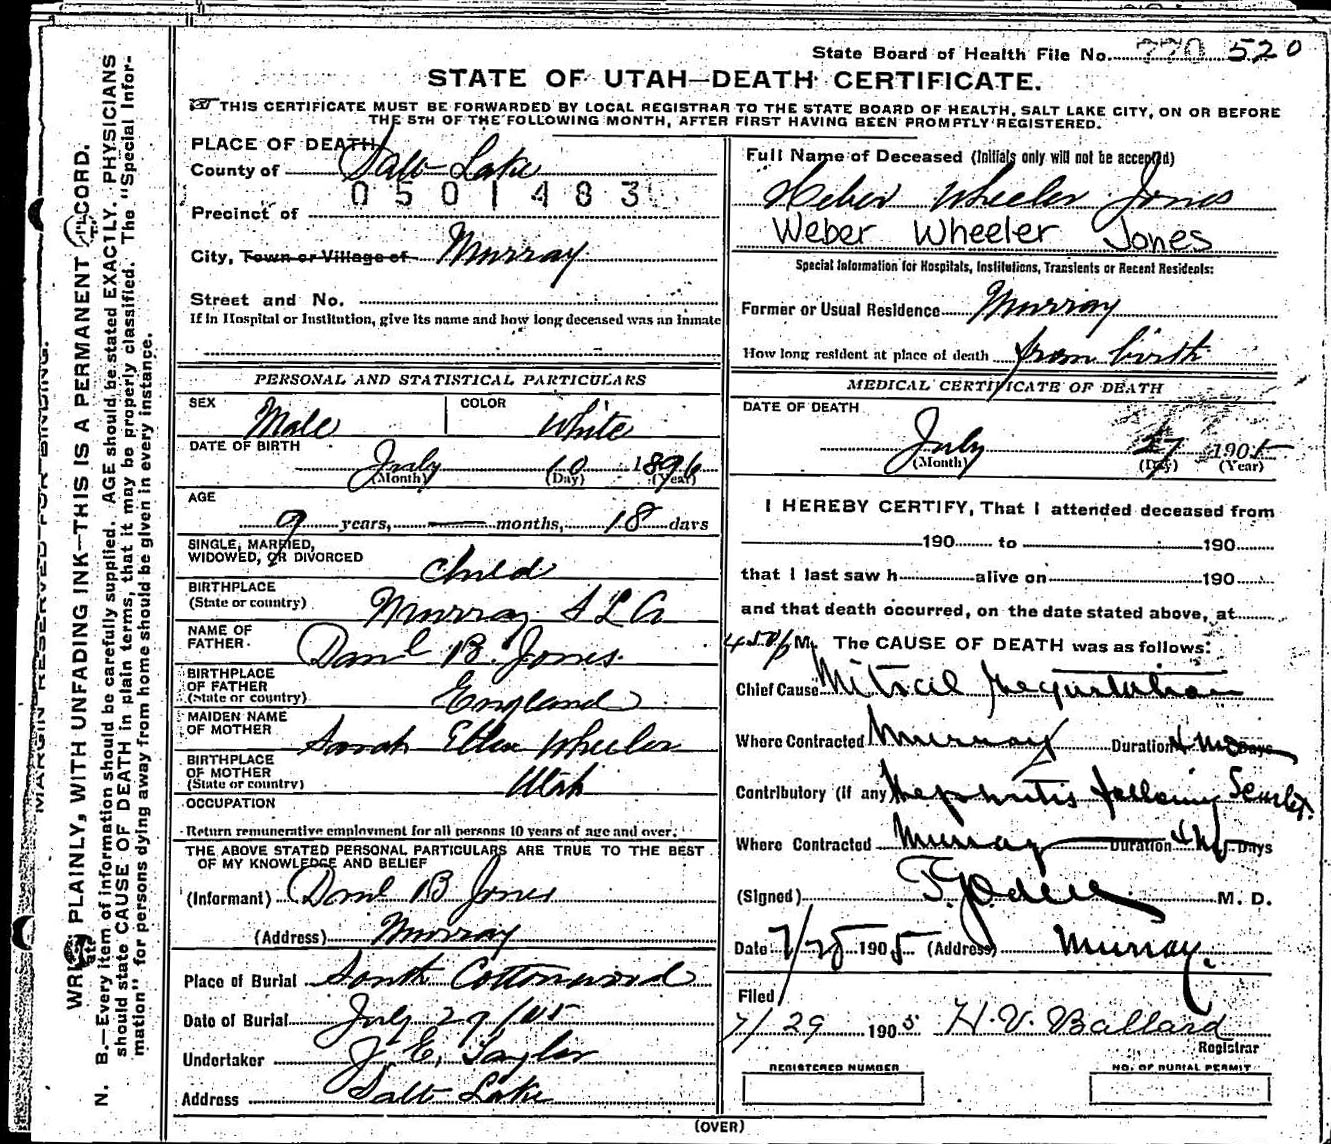 State Board of Health File No. 770 520
STATE OF UTAH—DEATH CERTIFICATE.
THIS CERTIFICATE MUST BE FORWARDED BY LOCAL REGISTRAR TO THE STATE BOARD OF HEALTH, SALT LAKE CITY, ON OR BEFORE
THE 5TH OF THE FOLLOWING MONTH, AFTER FIRST HAVING BEEN PROMPTLY REGISTERED.
PLACE OF DEATH
County of Salt Lake
0501483
Precinct of
City, Town or Village of Murray
Street and No.
If in Hospital or Institution, give its name and how long deceased was an inmate
PERSONAL AND STATISTICAL PARTICULARS
SEX Male COLOR White
DATE OF BIRTH
July 10 1896
(Month) (Day) (Year)
AGE
9 years, — months, 18 days
SINGLE, MARRIED,
WIDOWED, OR DIVORCED Child
BIRTHPLACE
(State or country) Murray S L Co
NAME OF
FATHER Danl B. Jones
BIRTHPLACE
OF FATHER
(State or country) England
MAIDEN NAME
OF MOTHER Sarah Ellen Wheeler
BIRTHPLACE
OF MOTHER
(State or country) Utah
OCCUPATION
Return remunerative employment for all persons 10 years of age and over.
THE ABOVE STATED PERSONAL PARTICULARS ARE TRUE TO THE BEST
OF MY KNOWLEDGE AND BELIEF
(Informant) Danl B Jones
(Address) Murray
Place of Burial South Cottonwood
Date of Burial July 29/05
Undertaker J E. Taylor
Address Salt Lake
Full Name of Deceased (Initials only will not be accepted)
Heber Wheeler Jones
Weber Wheeler Jones
Special Information for Hospitals, Institutions, Transients or Recent Residents:
Former or Usual Residence Murray
How long resident at place of death from birth
MEDICAL CERTIFICATE OF DEATH
DATE OF DEATH
July 27 1905
(Month) (Day) (Year)
I HEREBY CERTIFY, That I attended deceased from
190 to 190
that I last saw h alive on 190
and that death occurred, on the date stated above, at
4:50 p M. The CAUSE OF DEATH was as follows:
Chief Cause Mitral Regurtation
Where Contracted Murray Duration 4 Mo Days
Contributory (if any) Nephritis following Scarlet.
Where Contracted Murray Duration 4 Mo Days
(Signed) M. D.
Date 7/28 1905 (Address) Murray.
Filed
7/29 1905 H. V. Ballard
Registrar
REGISTERED NUMBER
NO. OF BURIAL PERMIT
(OVER)
MARGIN RESERVED FOR BINDING.
WRITE PLAINLY, WITH UNFADING INK—THIS IS A PERMANENT RECORD.
N. B.—Every item of information should be carefully supplied. AGE should be stated EXACTLY. PHYSICIANS
should state CAUSE OF DEATH in plain terms, that it may be properly classified. The "Special Infor-
mation" for persons dying away from home should be given in every instance.